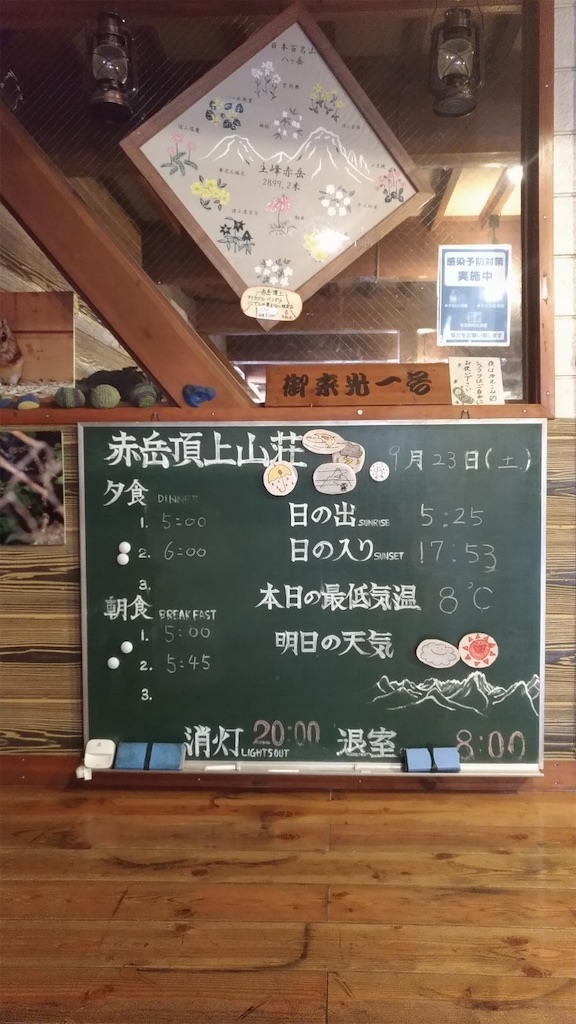 日本百名山
八ヶ岳
主峰赤岳
2899.2米
赤岳頂上
感染予防対策
実施中
御来光一号
赤岳頂上山荘
9月23日(土)
夕食 DINNER
1. 5:00
2. 6:00
3.
日の出 SUNRISE 5:25
日の入り SUNSET 17:53
本日の最低気温 8℃
明日の天気
朝食 BREAKFAST
1. 5:00
2. 5:45
3.
消灯 LIGHTS OUT 20:00
退室 8:00